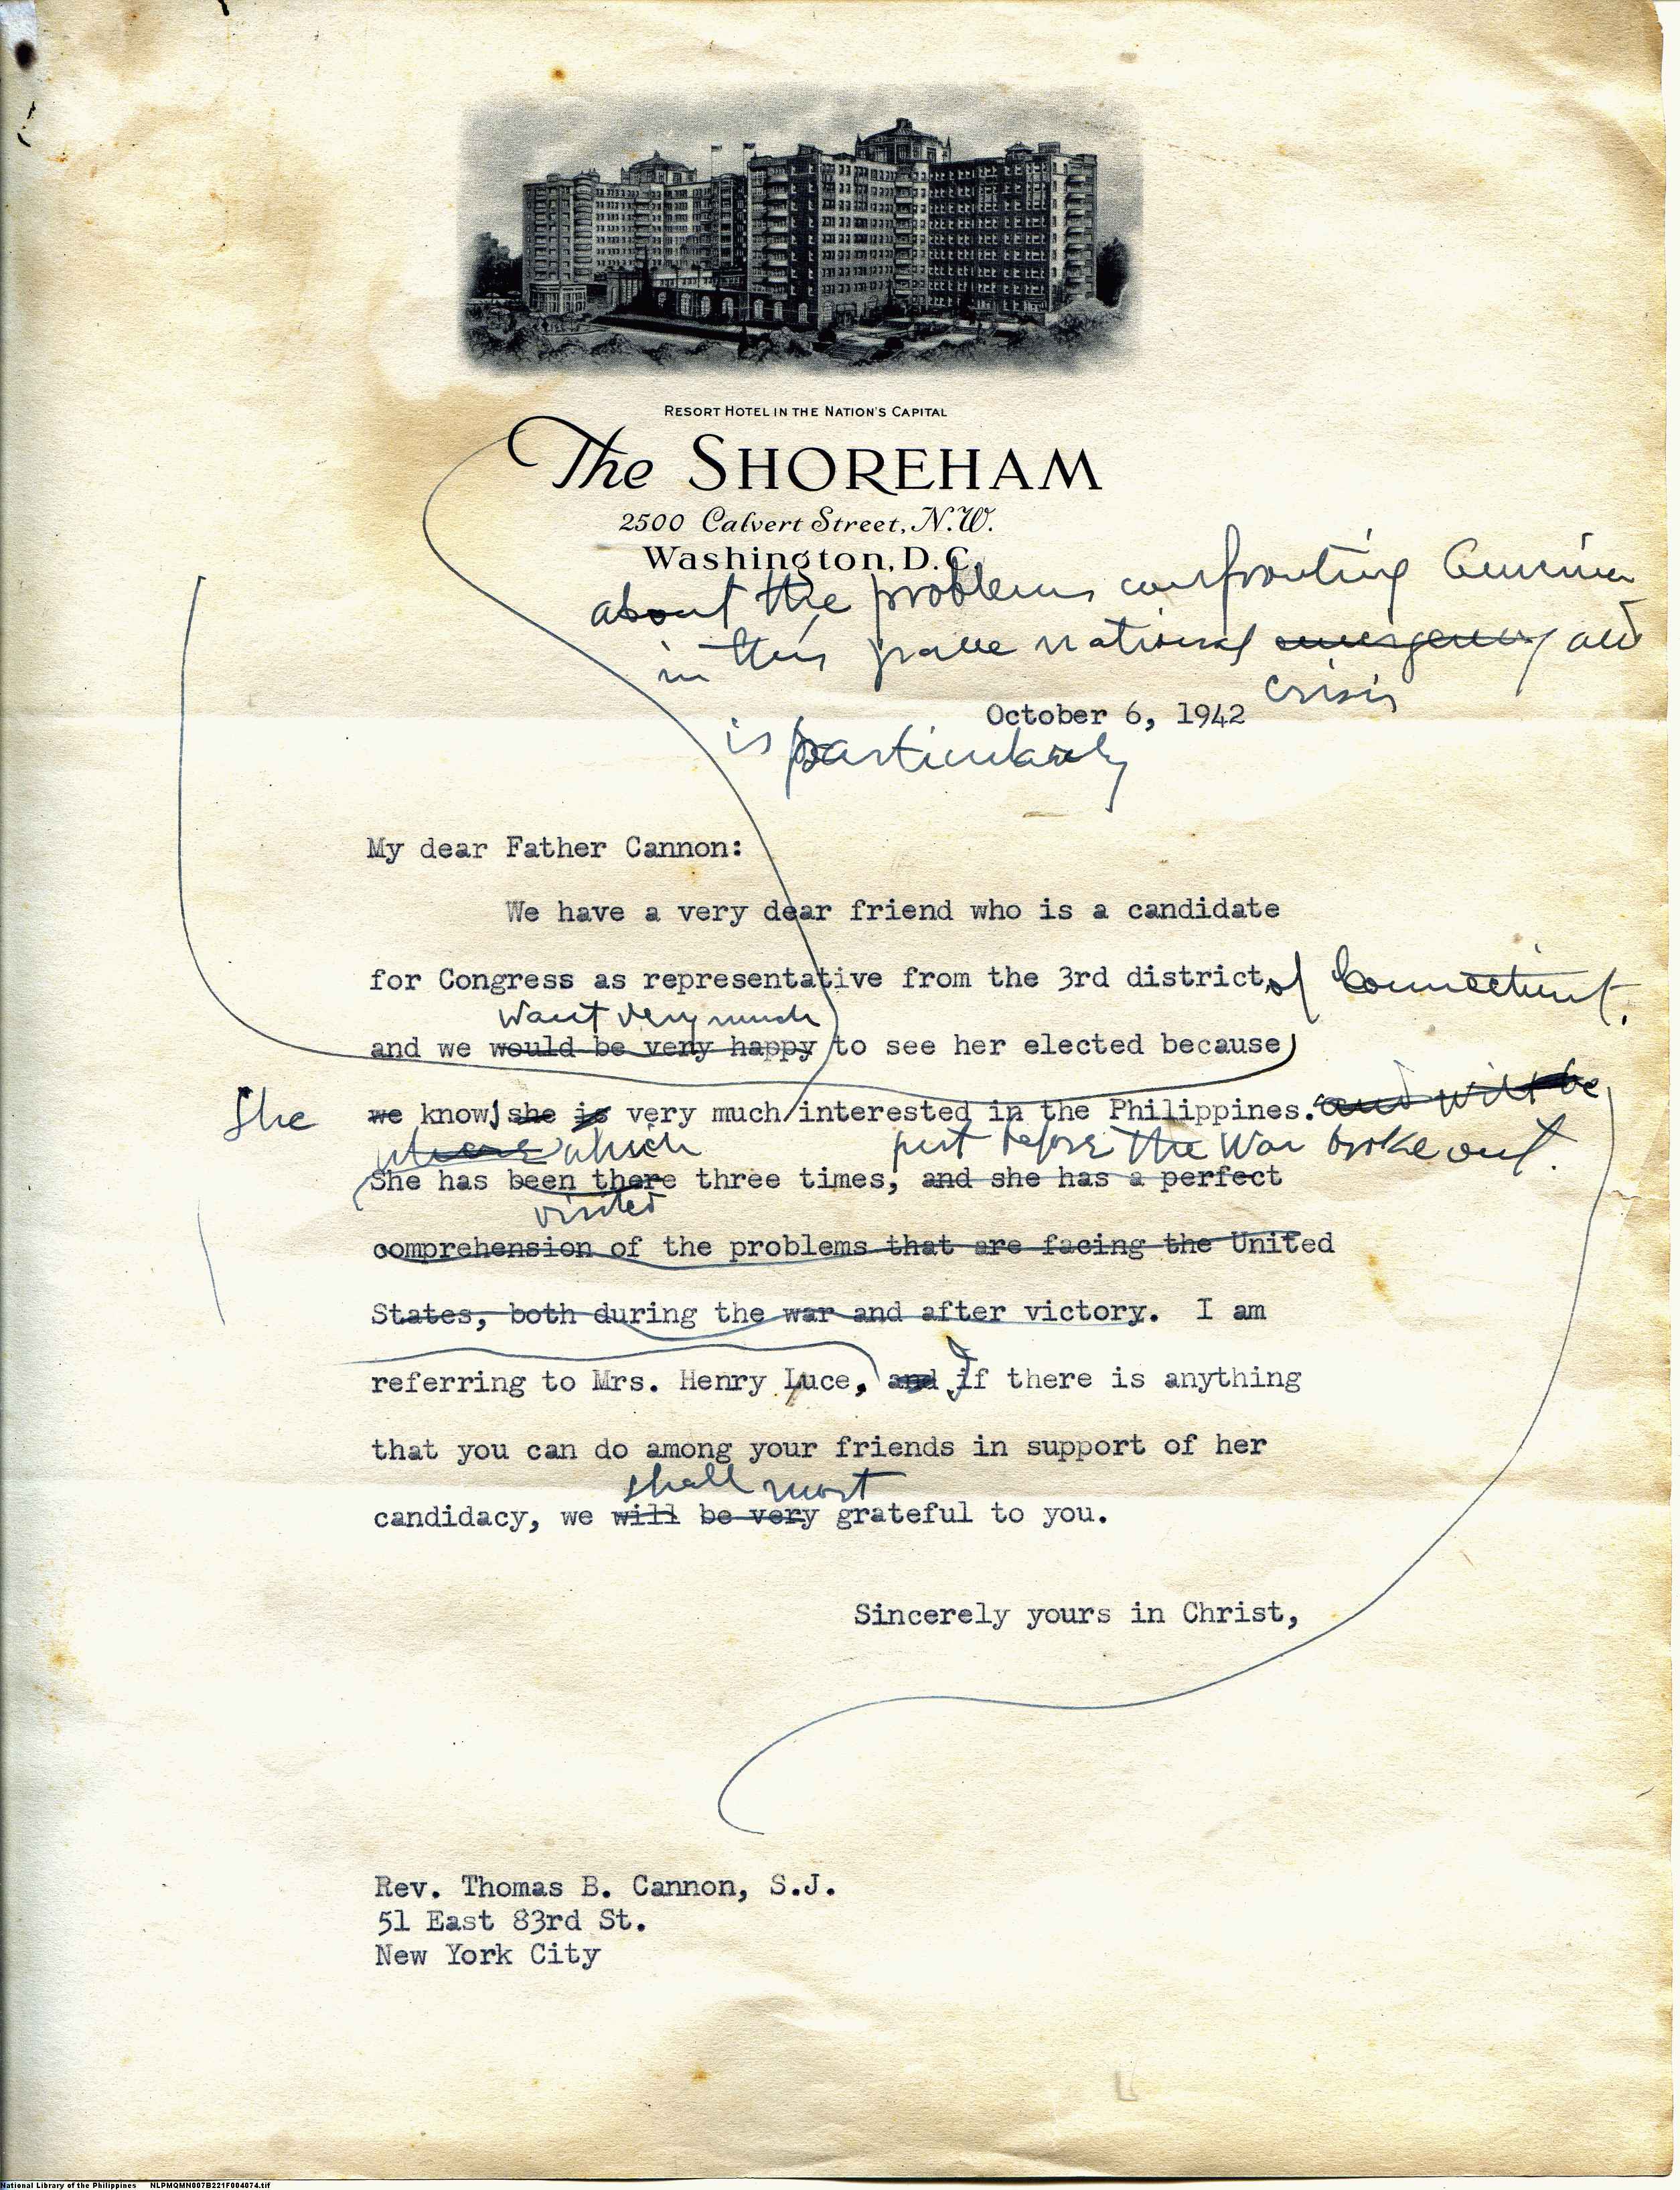 RESORT HOTEL IN THE NATION'S CAPITAL
The SHOREHAM
2500 Calvert Street, N.W.
Washington, D.C.
about the problems confronting America
in this grave national emergency and
crisis
October 6, 1942
is particularly
My dear Father Cannon:
We have a very dear friend who is a candidate
for Congress as representative from the 3rd district, of Connecticut.
want very much
and we would be very happy to see her elected because
She we know she is very much interested in the Philippines. and will be
where which just before the War broke out.
She has been there three times, and she has a perfect
visited
comprehension of the problems that are facing the United
States, both during the war and after victory. I am
referring to Mrs. Henry Luce, and if there is anything
that you can do among your friends in support of her
shall most
candidacy, we will be very grateful to you.
Sincerely yours in Christ,
Rev. Thomas B. Cannon, S.J.
51 East 83rd St.
New York City
National Library of the Philippines NLPMQMN007B221F004074.tif